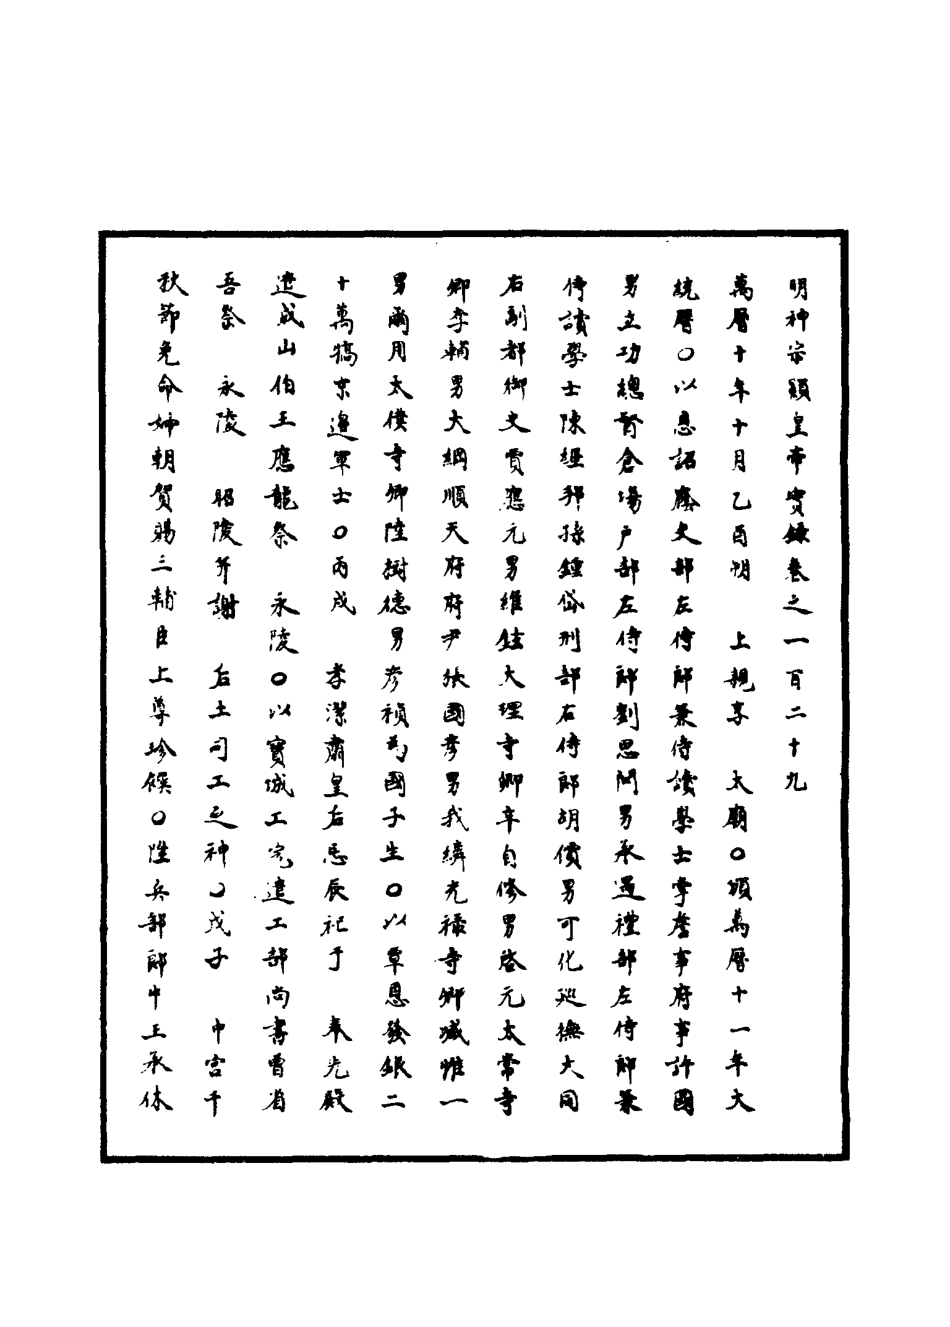 明神宗顯皇帝實錄卷之一百二十九
萬曆十年十月乙酉朔　上親享　太廟〇頒萬曆十一年大
統曆〇以恩詔廕吏部左侍郎兼侍讀學士掌詹事府事許國
男立功總督倉場戶部左侍郎劉思問男承遇禮部左侍郎兼
侍讀學士陳經邦孫鍾岱刑部右侍郎胡價男可化巡撫大同
右副都御史賈應元男維鉉大理寺卿辛自修男啓元太常寺
卿李輔男大綱順天府府尹張國彥男我繩光祿寺卿臧惟一
男爾用太僕寺卿陸樹德男彥禎為國子生〇以覃恩發銀二
十萬犒京邊軍士〇丙戌　孝潔肅皇后忌辰祀于　奉先殿
遣成山伯王應龍祭　永陵〇以寶城工完遣工部尚書曾省
吾祭　永陵　昭陵并謝　后土司工之神〇戊子　中宮千
秋節免命婦朝賀賜三輔臣上尊珍饌〇陞兵部郎中王承休